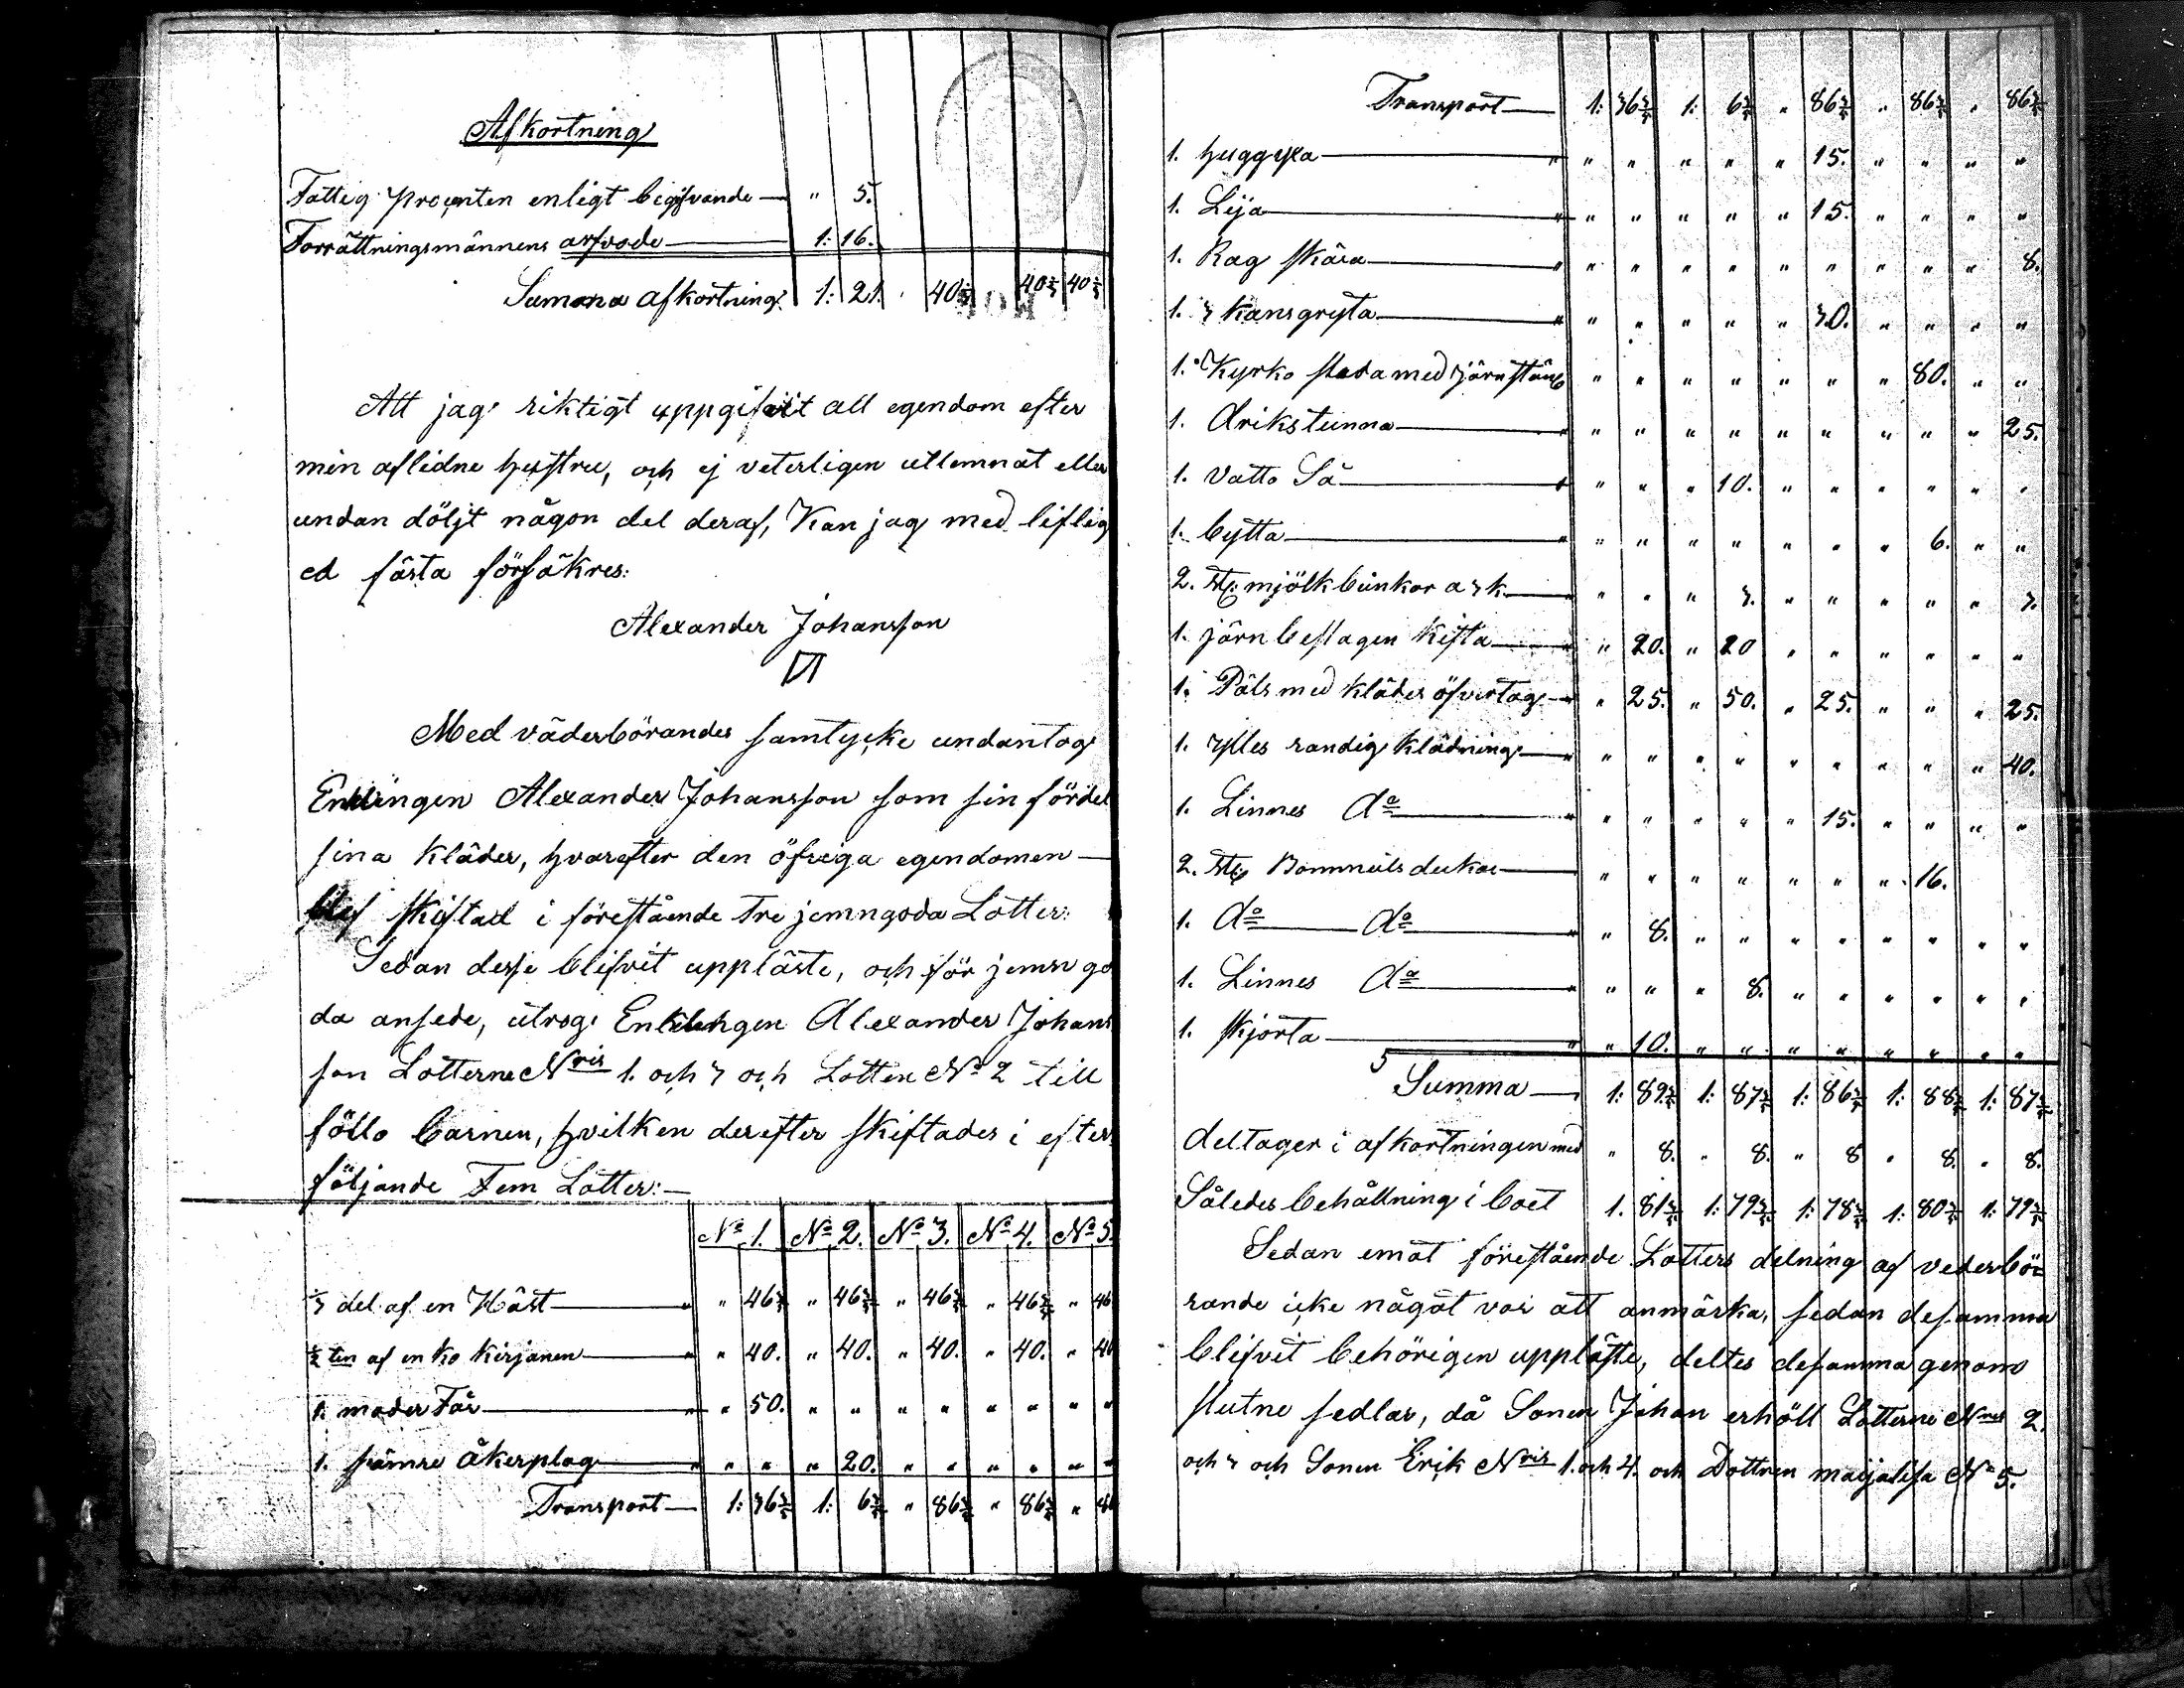 Afkortning
Fattig procenten enligt begifvande — " 5.
Forrättningsmännens arfvode — 1: 16.
Summa afkortning 1: 21. 40 1/3 40 1/3 40 1/3
Att jag riktigt uppgifvit all egendom efter
min aflidne hustru, och ej veterligen utlemnat eller
undan döljt någon del deraf, Kan jag med liflig
ed fästa försäkres:
Alexander Johansson
Med väderbörandes samtycke undantog
Enklingen Alexander Johansson som sin fördel
sina Kläder, hvarefter den öfriga egendomen —
blef skiftad i förestående Tre jemngoda Lotter:
Sedan desse blifvit uppläste, och för jemn go
da ansede, utrog Enklingen Alexander Johans
son Lotterne Nris 1. och 3 och Lotten No 2 till
föllo barnen, hvilken derefter skiftades i efter
följande Fem Lotter: —
No 1. No 2. No 3. No 4. No 5.
1/3 del af en Häst — " " 46 3/5 " 46 3/5 " 46 3/5 " 46 3/5 " 46
1/2 ten af en ko Kirjanen — " " 40. " 40. " 40. " 40. " 40
1. moder Får — " " 50. " " " " " " " "
1. sämre åkerplog — " " " " 20. " " " " " "
Transport — 1: 36 3/5 1: 6 3/5 " 86 3/5 " 86 3/5 " 86
Transport — 1: 36 3/5 1: 6 3/5 " 86 3/5 " 86 3/5 " 86 3/5
1. huggyxa — " " " " " " 15. " " " "
1. Lija — " " " " " " 15. " " " "
1. Rag skära — " " " " " " " " " " 8.
1. 3 kansgryta — " " " " " " 30. " " " "
1. Kyrko slada med järnstäng " " " " " " " 80. " "
1. drikstunna — " " " " " " " " " " 25.
1. vatto Så — " " " " 10. " " " " " "
1. bytta — " " " " " " " " 6. " "
2. st. mjölk bunkor a 3 k. — " " " " 3. " " " " " 3.
1. järn beslagen Kista — " " 20. " 20 " " " " " "
1. Päls med kläder öfvertog — " " 25. " 50. " 25. " " " 25.
1. ylles randig Klädning — " " " " " " " " " " 40.
1. Linnes do — " " " " " " 15. " " " "
2. st. Bommuls dukar — " " " " " " " 16.
1. do — do — " " 8. " " " " " " " "
1. Linnes do — " " " " 8. " " " " " "
1. skjorta — " " 10. " " " " " " " "
Summa — 1: 89 3/5 1: 87 3/5 1: 86 3/5 1: 88 3/5 1: 87 3/5
deltager i afkortningen med " 8. " 8. " 8 " 8. " 8.
Således behållning i boet 1. 81 3/5 1: 79 3/5 1: 78 3/5 1: 80 3/5 1: 79 3/5
Sedan emot förestående Lotters delning af vederbö
rande icke något var att anmärka, sedan desamma
blifvit behörigen uppläste, deltes desamma genom
slutne sedlar, då Sonen Johan erhöll Lotterne Nris 2.
och 3 och Sonen Erik Nris 1. och 4. och Dottren maijalisa No 5.